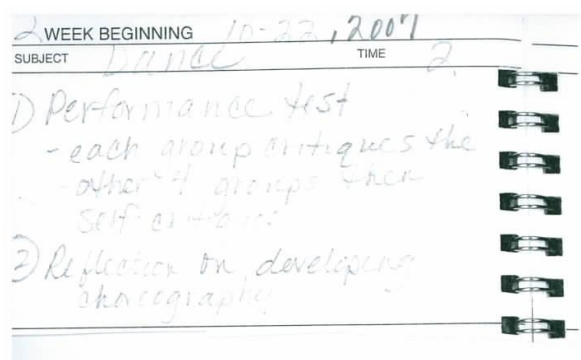 2 WEEK BEGINNING 10-22, 2007
SUBJECT Dance TIME 2
1) Performance test
- each group critiques the
- other 4 groups then
self critique.
2) Reflection on developing
choreography